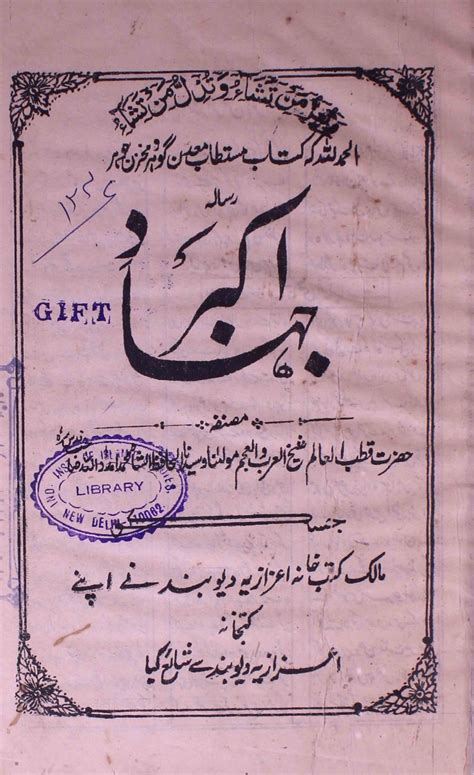 وتعز من تشاء وتذل من تشاء
الحمد للہ کہ کتاب مستطاب معدن گوہر و مخزن جوہر
رسالہ
جہاد اکبر
۱۲۲۶
GIFT
مصنفہ
حضرت قطب العالم شیخ العرب والعجم مولٰنا وسیدنا الحافظ الحاج محمد امداد اللہ
INDO. INST. OF ISLAMIC STUDIES.
LIBRARY
NEW DELHI-110062
جسکو
مالک کتب خانہ اعزازیہ دیوبند نے اپنے
کتبخانہ
اعزازیہ دیوبند سے شائع کیا